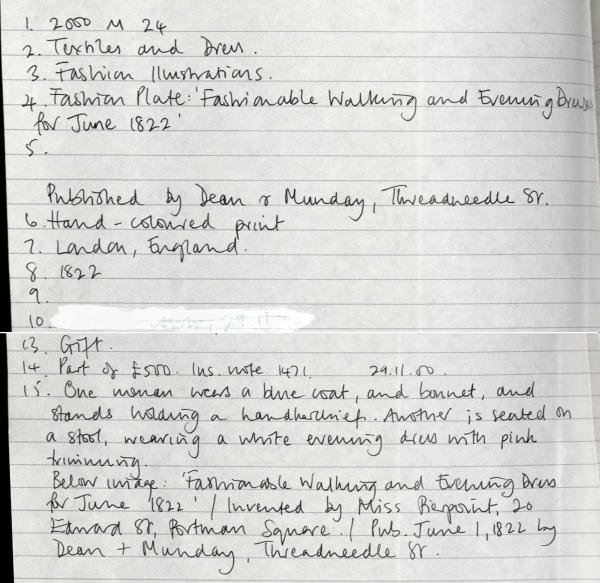 1. 2000 M 24
2. Textiles and Dress.
3. Fashion Illustrations.
4. Fashion Plate: 'Fashionable Walking and Evening Dresses
for June 1822'
5.
Published by Dean & Munday, Threadneedle St.
6. Hand-coloured print
7. London, England.
8. 1822
9.
10.
13. Gift.
14. Part of £500. Ins. note 1471. 29.11.00.
15. One woman wears a blue coat, and bonnet, and
stands holding a handkerchief. Another is seated on
a stool, wearing a white evening dress with pink
trimming.
Below image: 'Fashionable Walking and Evening Dress
for June 1822' / Invented by Miss Pierpoint, 20
Edward St, Portman Square. / Pub. June 1, 1822 by
Dean + Munday, Threadneedle St.